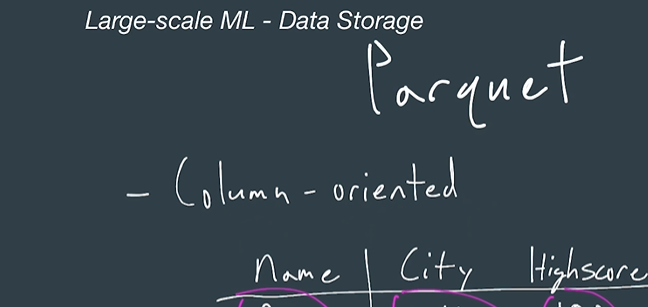 Large-scale ML - Data Storage
Parquet
- Column-oriented
Name | City Highscore